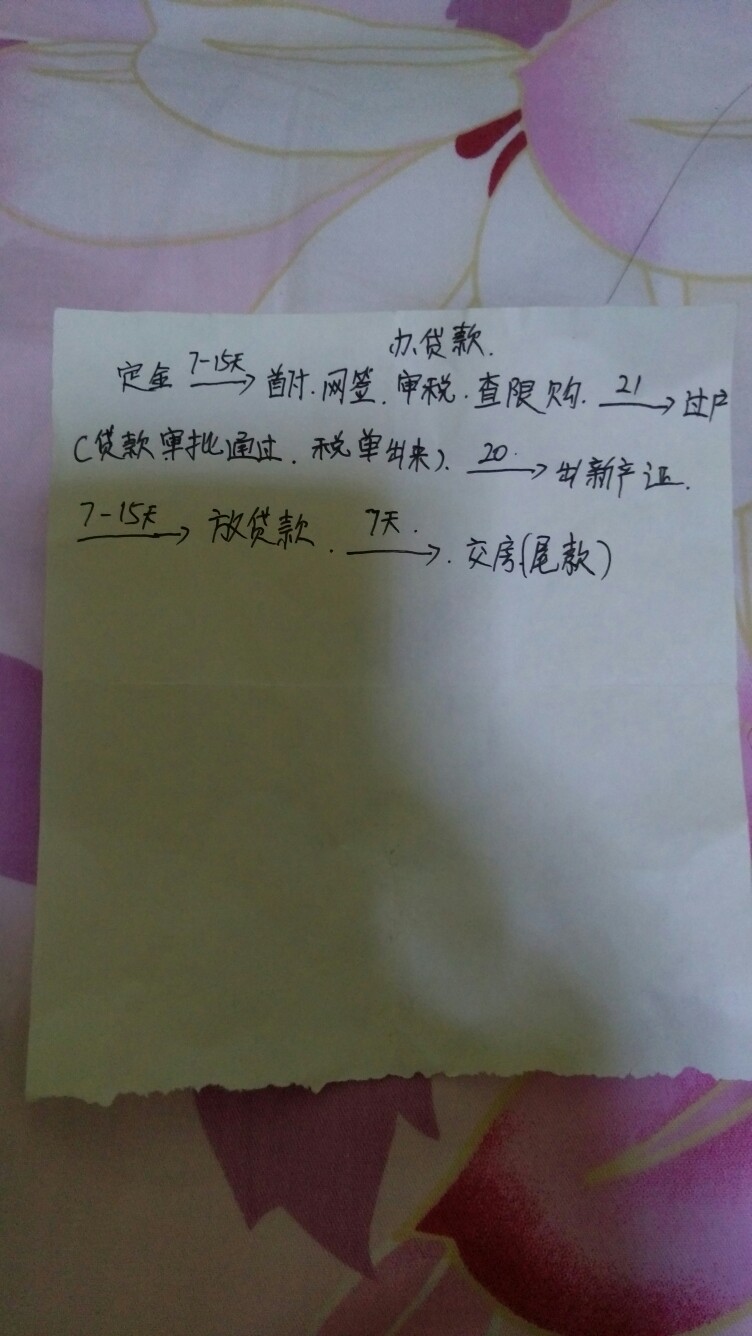 办贷款.
定金 7-15天→ 首付.网签.审税.查限购. 21→ 过户
(贷款审批通过.税单出来). 20.→ 出新产证.
7-15天→ 放贷款. 7天.→. 交房(尾款)